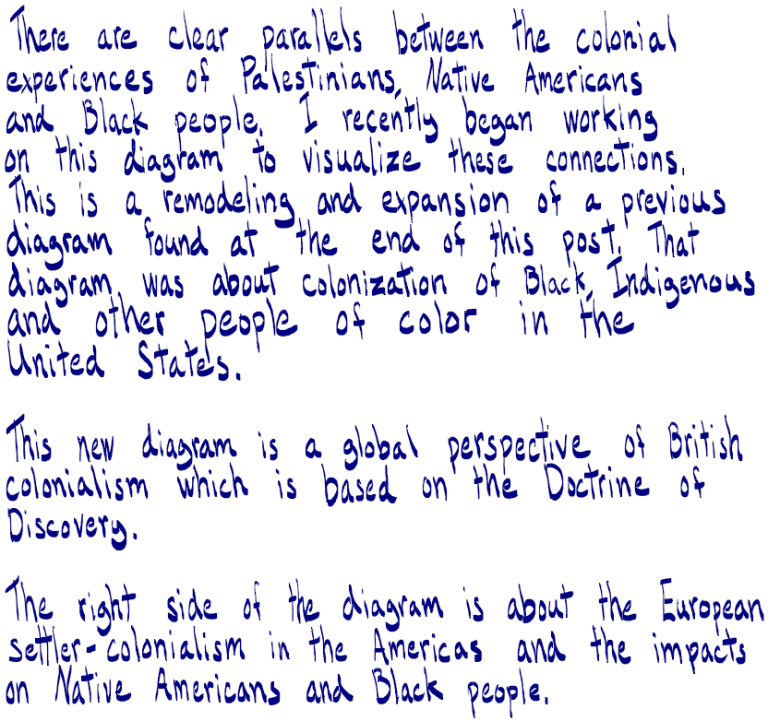 There are clear parallels between the colonial
experiences of Palestinians, Native Americans
and Black people. I recently began working
on this diagram to visualize these connections.
This is a remodeling and expansion of a previous
diagram found at the end of this post. That
diagram was about colonization of Black, Indigenous
and other people of color in the
United States.

This new diagram is a global perspective of British
colonialism which is based on the Doctrine of
Discovery.

The right side of the diagram is about the European
settler-colonialism in the Americas and the impacts
on Native Americans and Black people.